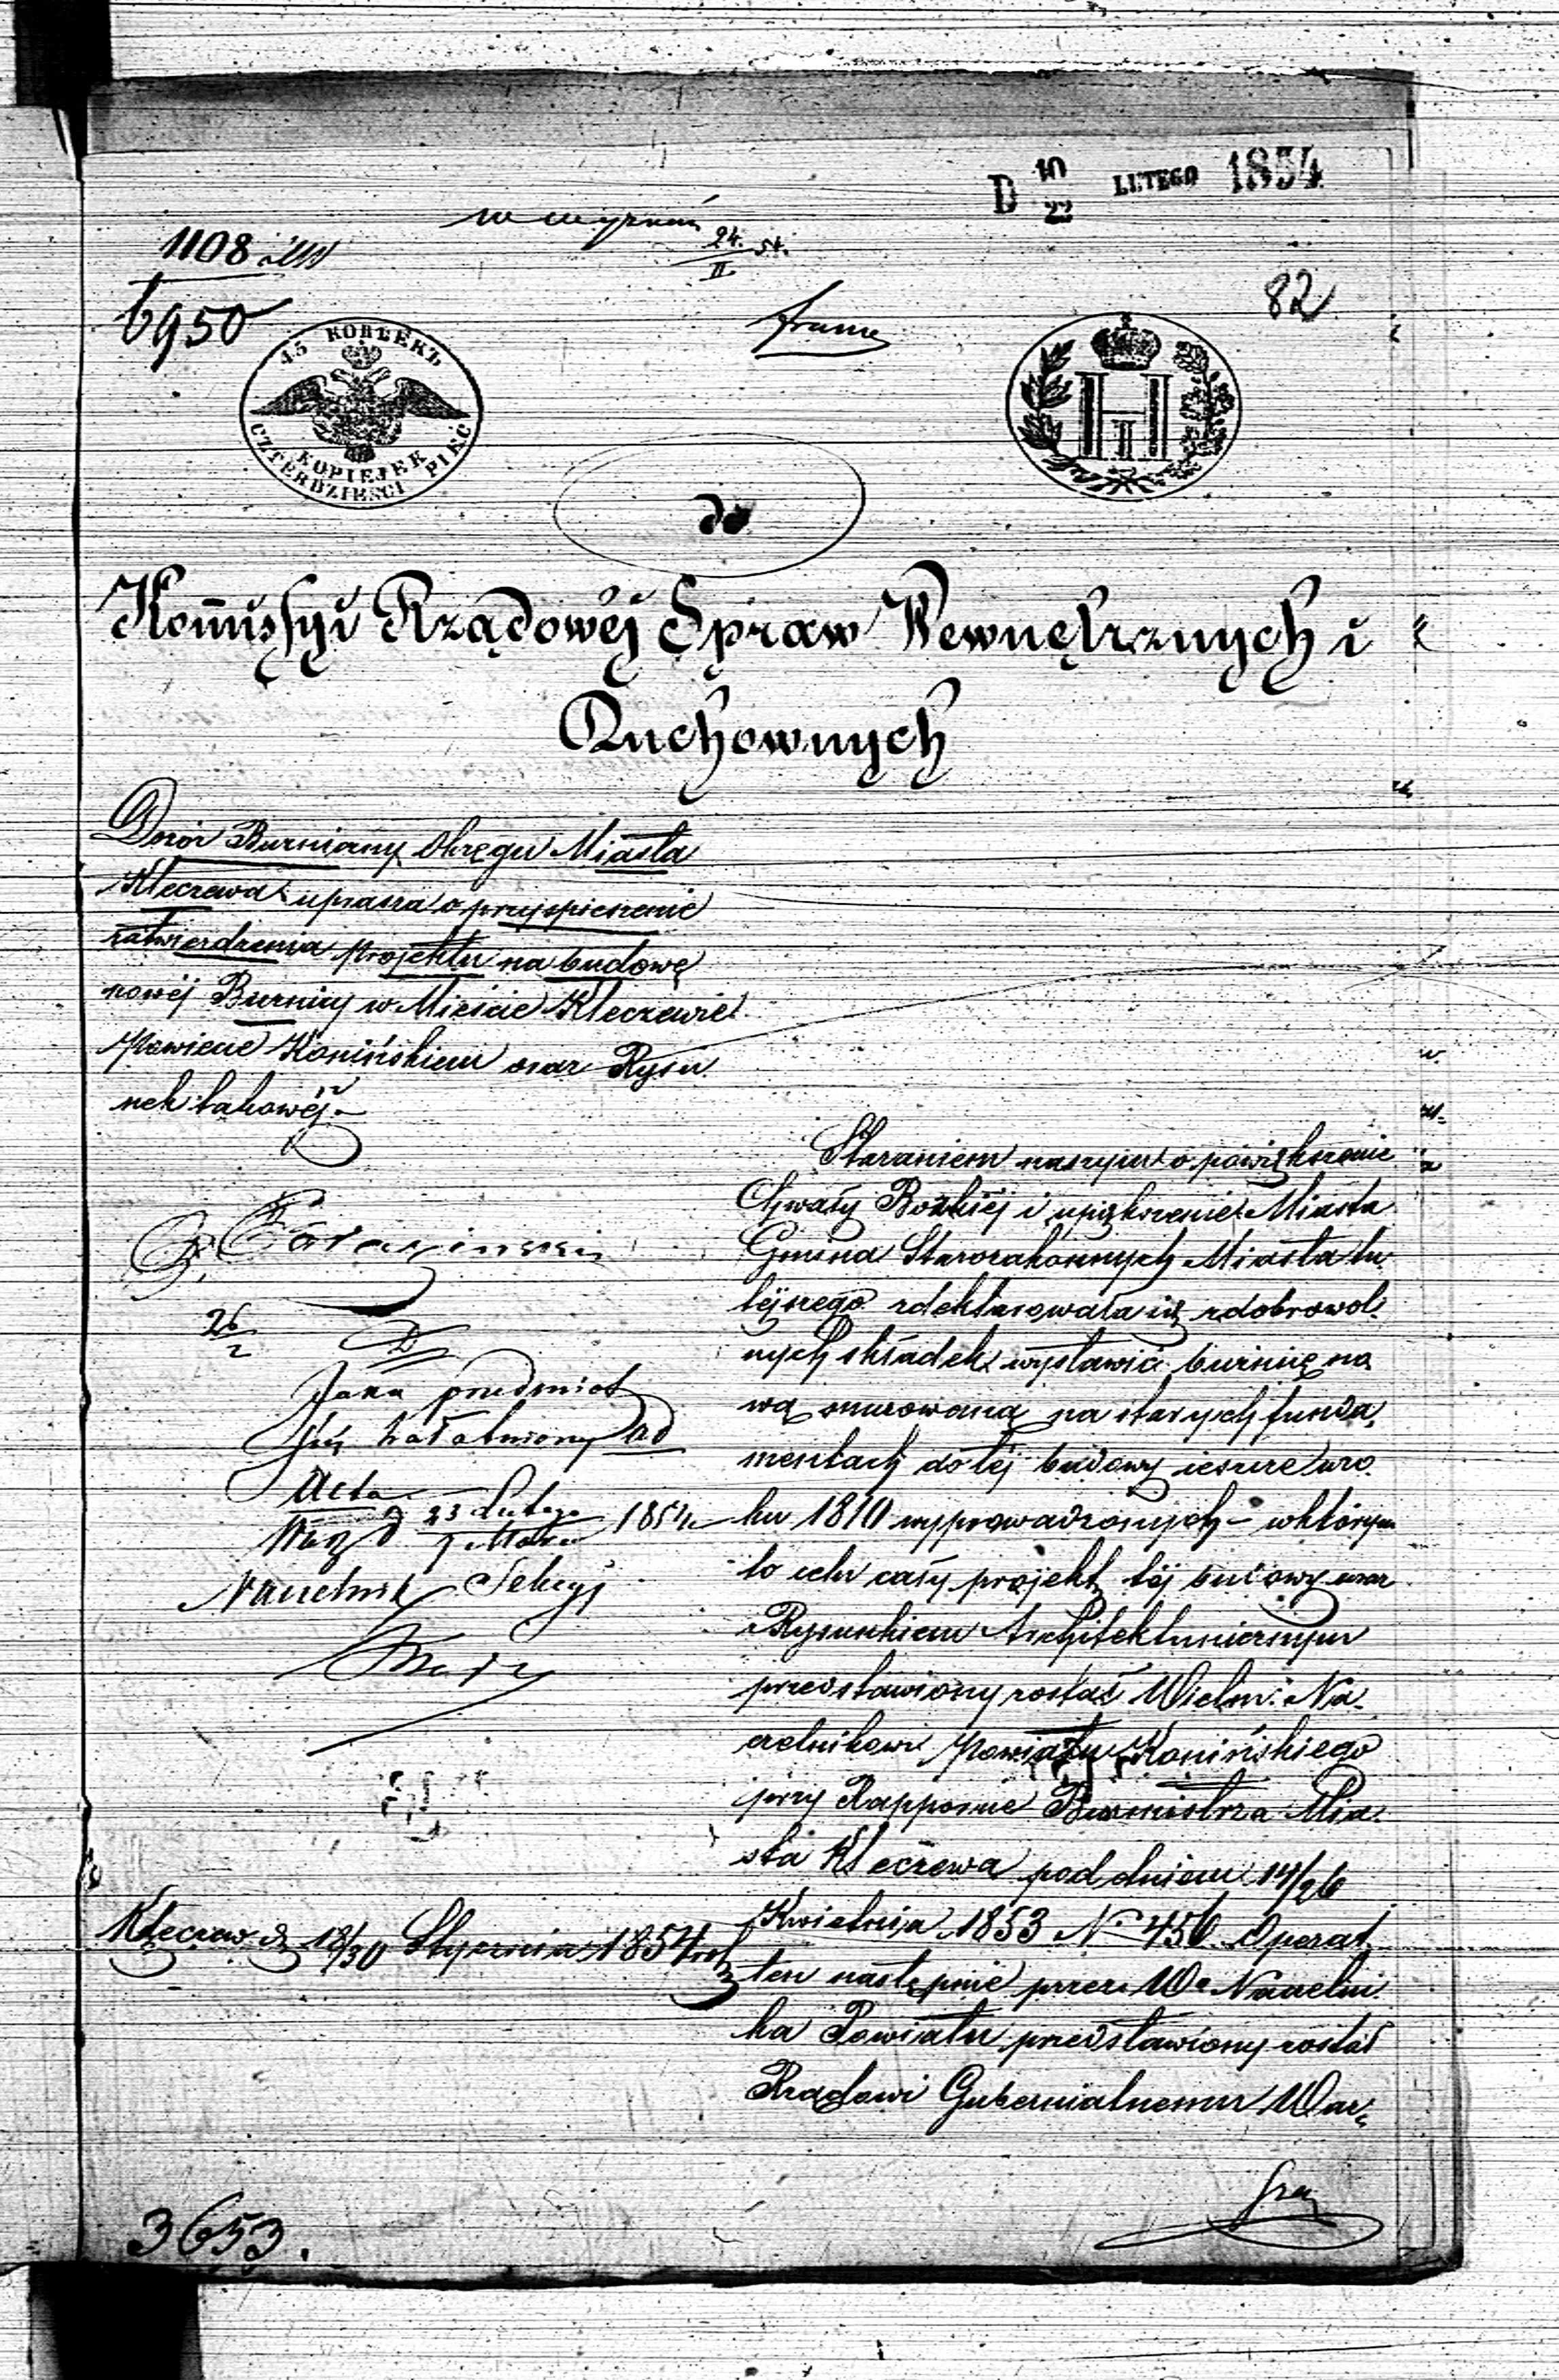 D 10/22 LUTEGO 1854
24./II 54.
1108
6950
82
45 КОПѢЕКЪ
KOPIEJEK
CZTERDZIEŚCI PIĘĆ
do
Kommissyi Rządowéj Spraw Wewnętrznych i
Duchownych
Dozór Bużniany Okręgu Miasta
Kleczewa uprasza o przyspieszenie
zatwierdzenia projektu na budowę
nowéj Bużnicy w Mieście Kleczewie
Powiecie Konińskiem oraz Rysu
nek takowéj.
26/2
Jako przedmiot
już załatwiony ad
Acta
Warz d 23 Lutego / 7 Marca 1854
Naczelnik Sekcyj
Kleczew d 18/30 Stycznia 1854 roku
Staraniem naszym o powiększenie
Chwały Bozkiéj i upiększenie Miasta
Gmina Starozakonnych Miasta tu
téjszego zdeklarowała się z dobrowol
nych składek wystawić bużnię no
wą murowaną na starych funda
mentach do téj budowy ieszcze w ro
ku 1810 wyprowadzonych – w którym
to celu cały projekt téj budowy wraz
z Rysunkiem Architektonicznym
przedstawiony został Wielm. Na
czelnikowi Powiatu Konińskiego
przy Rapporcie Burmistrza Mia
sta Kleczewa pod dniem 14/26
Kwietnia 1853 N 456. Operat
ten następnie przez W. Naczelni
ka Powiatu przedstawiony został
Rządowi Gubernialnemu War
3653.